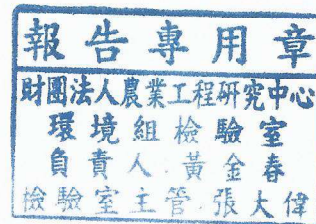 報告專用章
財團法人農業工程研究中心
環境組檢驗室
負責人黃金春
檢驗室主管張大偉